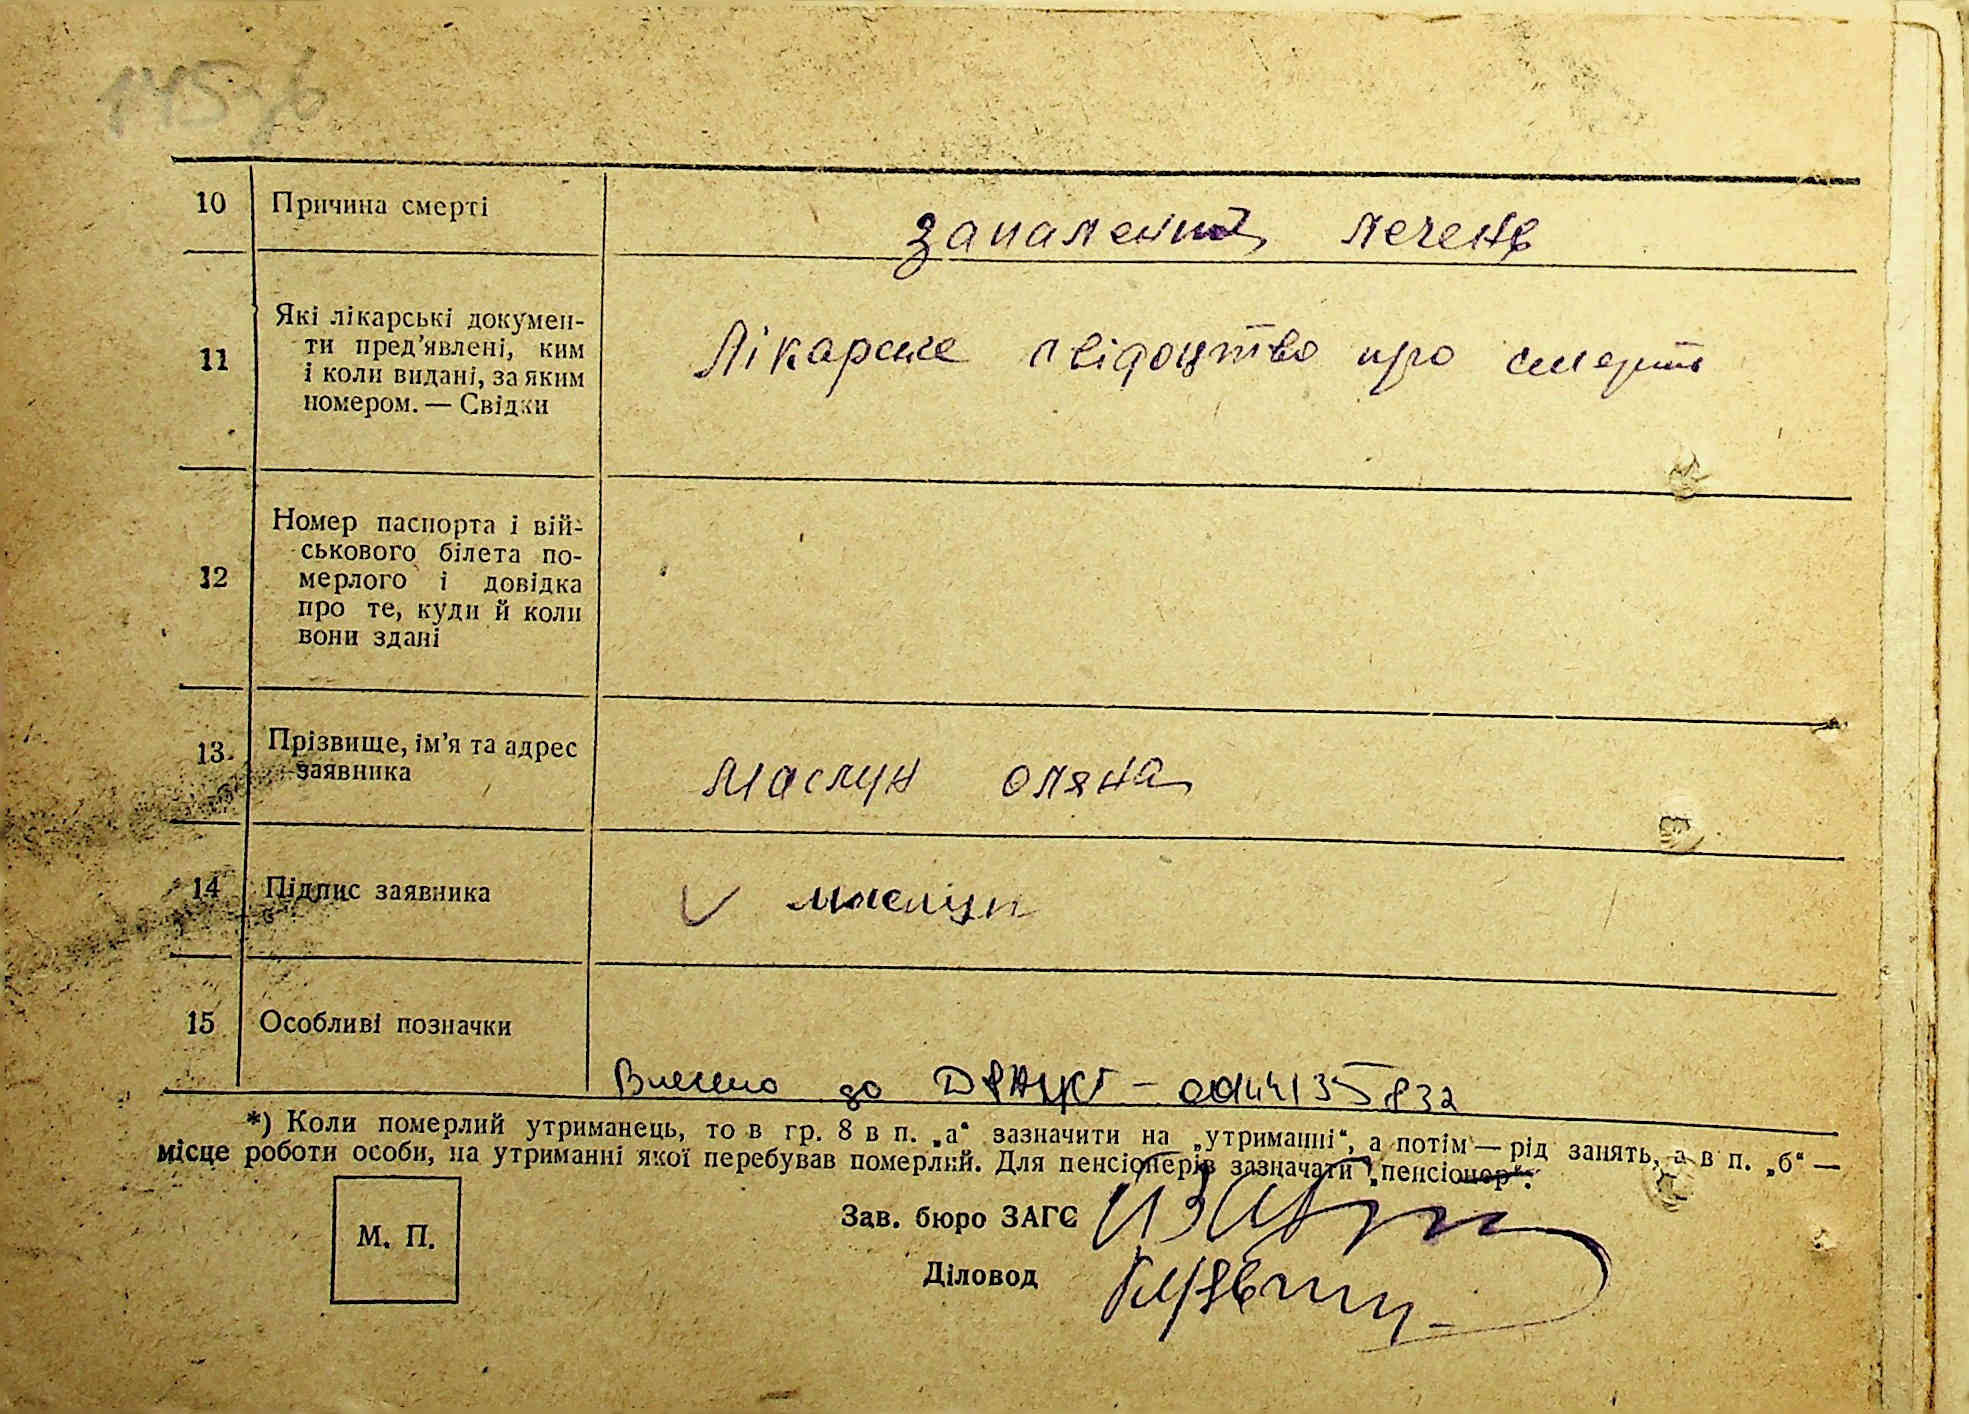 145зб
10 Причина смерті запалення печень
11 Які лікарські докумен-
ти пред'явлені, ким
і коли видані, за яким
номером. — Свідки
Лікарське свідоцтво про смерть
12 Номер паспорта і вій-
ськового білета по-
мерлого і довідка
про те, куди й коли
вони здані
13. Прізвище, ім'я та адрес
заявника
Маслун Оляна
14 Підпис заявника
Маслун
15 Особливі позначки
Внесено до ДРАЦСГ – 00144135832
*) Коли померлий утриманець, то в гр. 8 в п. „а“ зазначити на „утриманні“, а потім — рід занять, а в п. „б“ —
місце роботи особи, на утриманні якої перебував померлий. Для пенсіонерів зазначати „пенсіонер“.
М. П.
Зав. бюро ЗАГС
Діловод